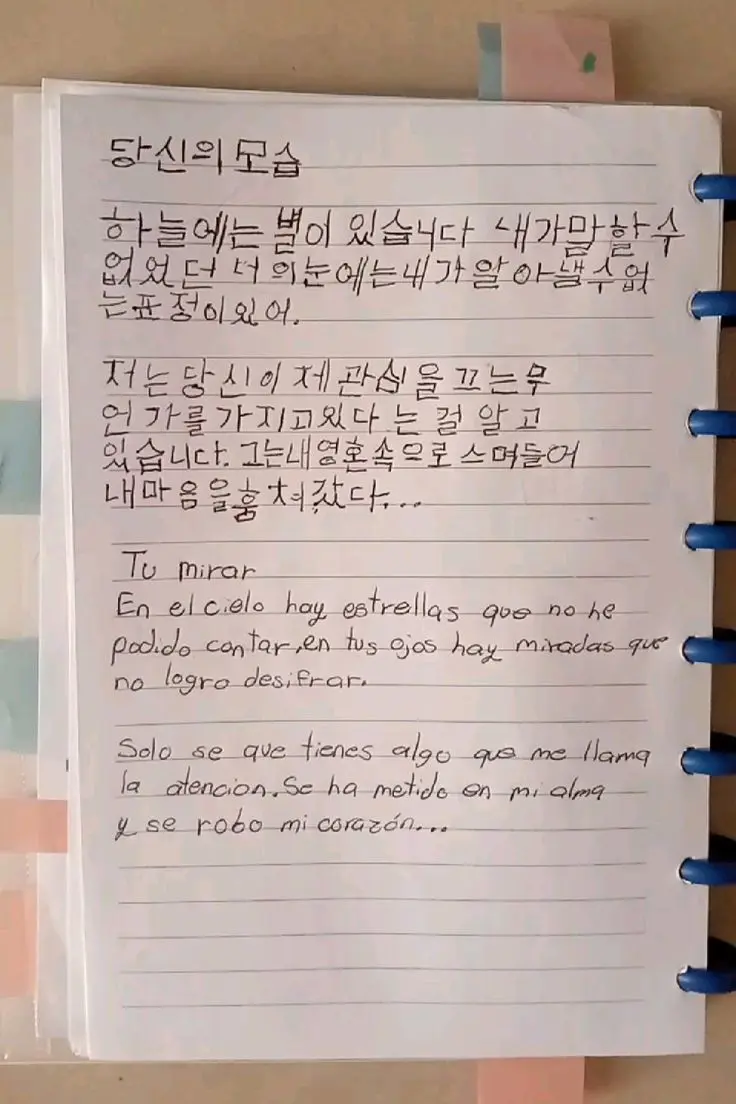 당신의 모습
하늘에는 별이 있습니다 내가말할수
없었던 너의눈에는내가알아낼수없
는표정이있어.
저는당신이 제관심을 끄는무
언가를가지고있다는걸 알고
있습니다. 그는내영혼속으로스며들어
내마음을훔쳐갔다...
Tu mirar
En el cielo hay estrellas que no he
podido contar, en tus ojos hay miradas que
no logro desifrar.
Solo se que tienes algo que me llama
la atencion. Se ha metido en mi alma
y se robo mi corazón...